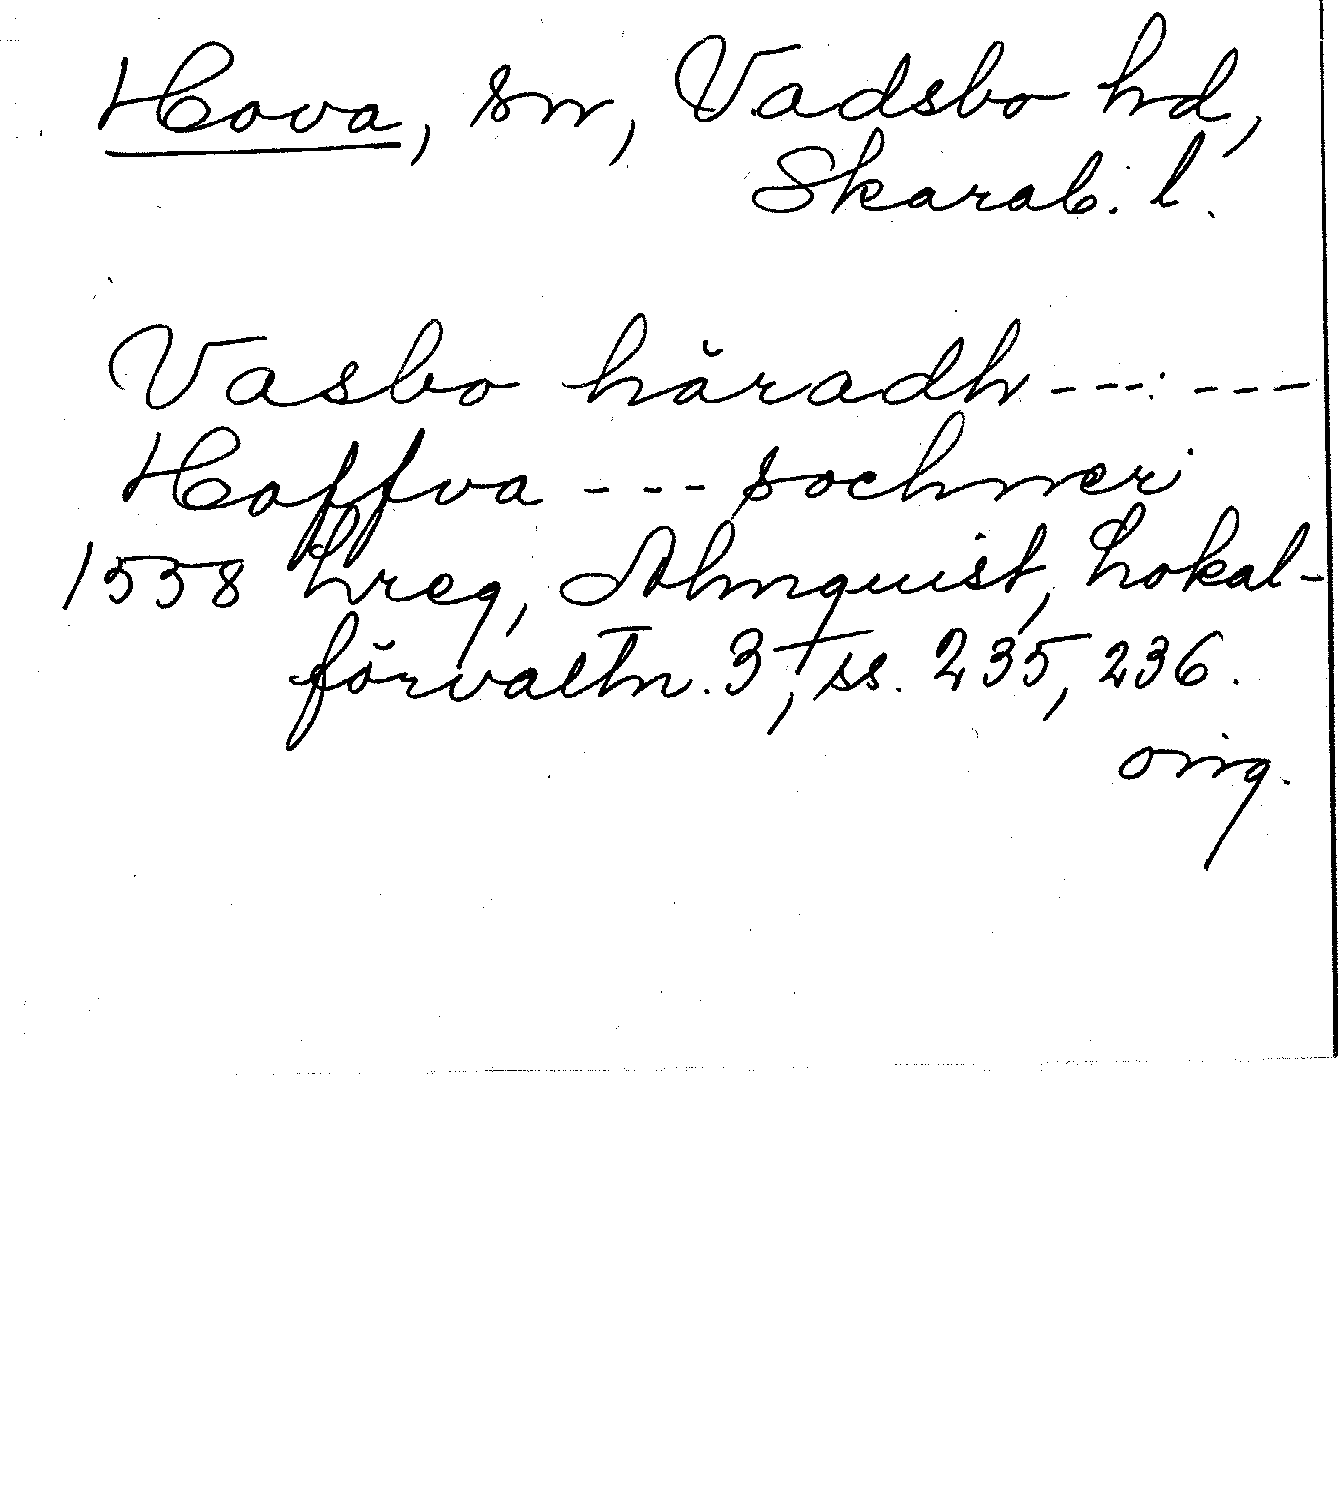 Hova, sn, Vadsbo hd,
Skarab. l.
Vasbo häradh --- : ---
Hoffva --- sochner
1558 Lreg, Almquist, Lokal-
förvaltn. 3, ss. 235, 236.
orig.